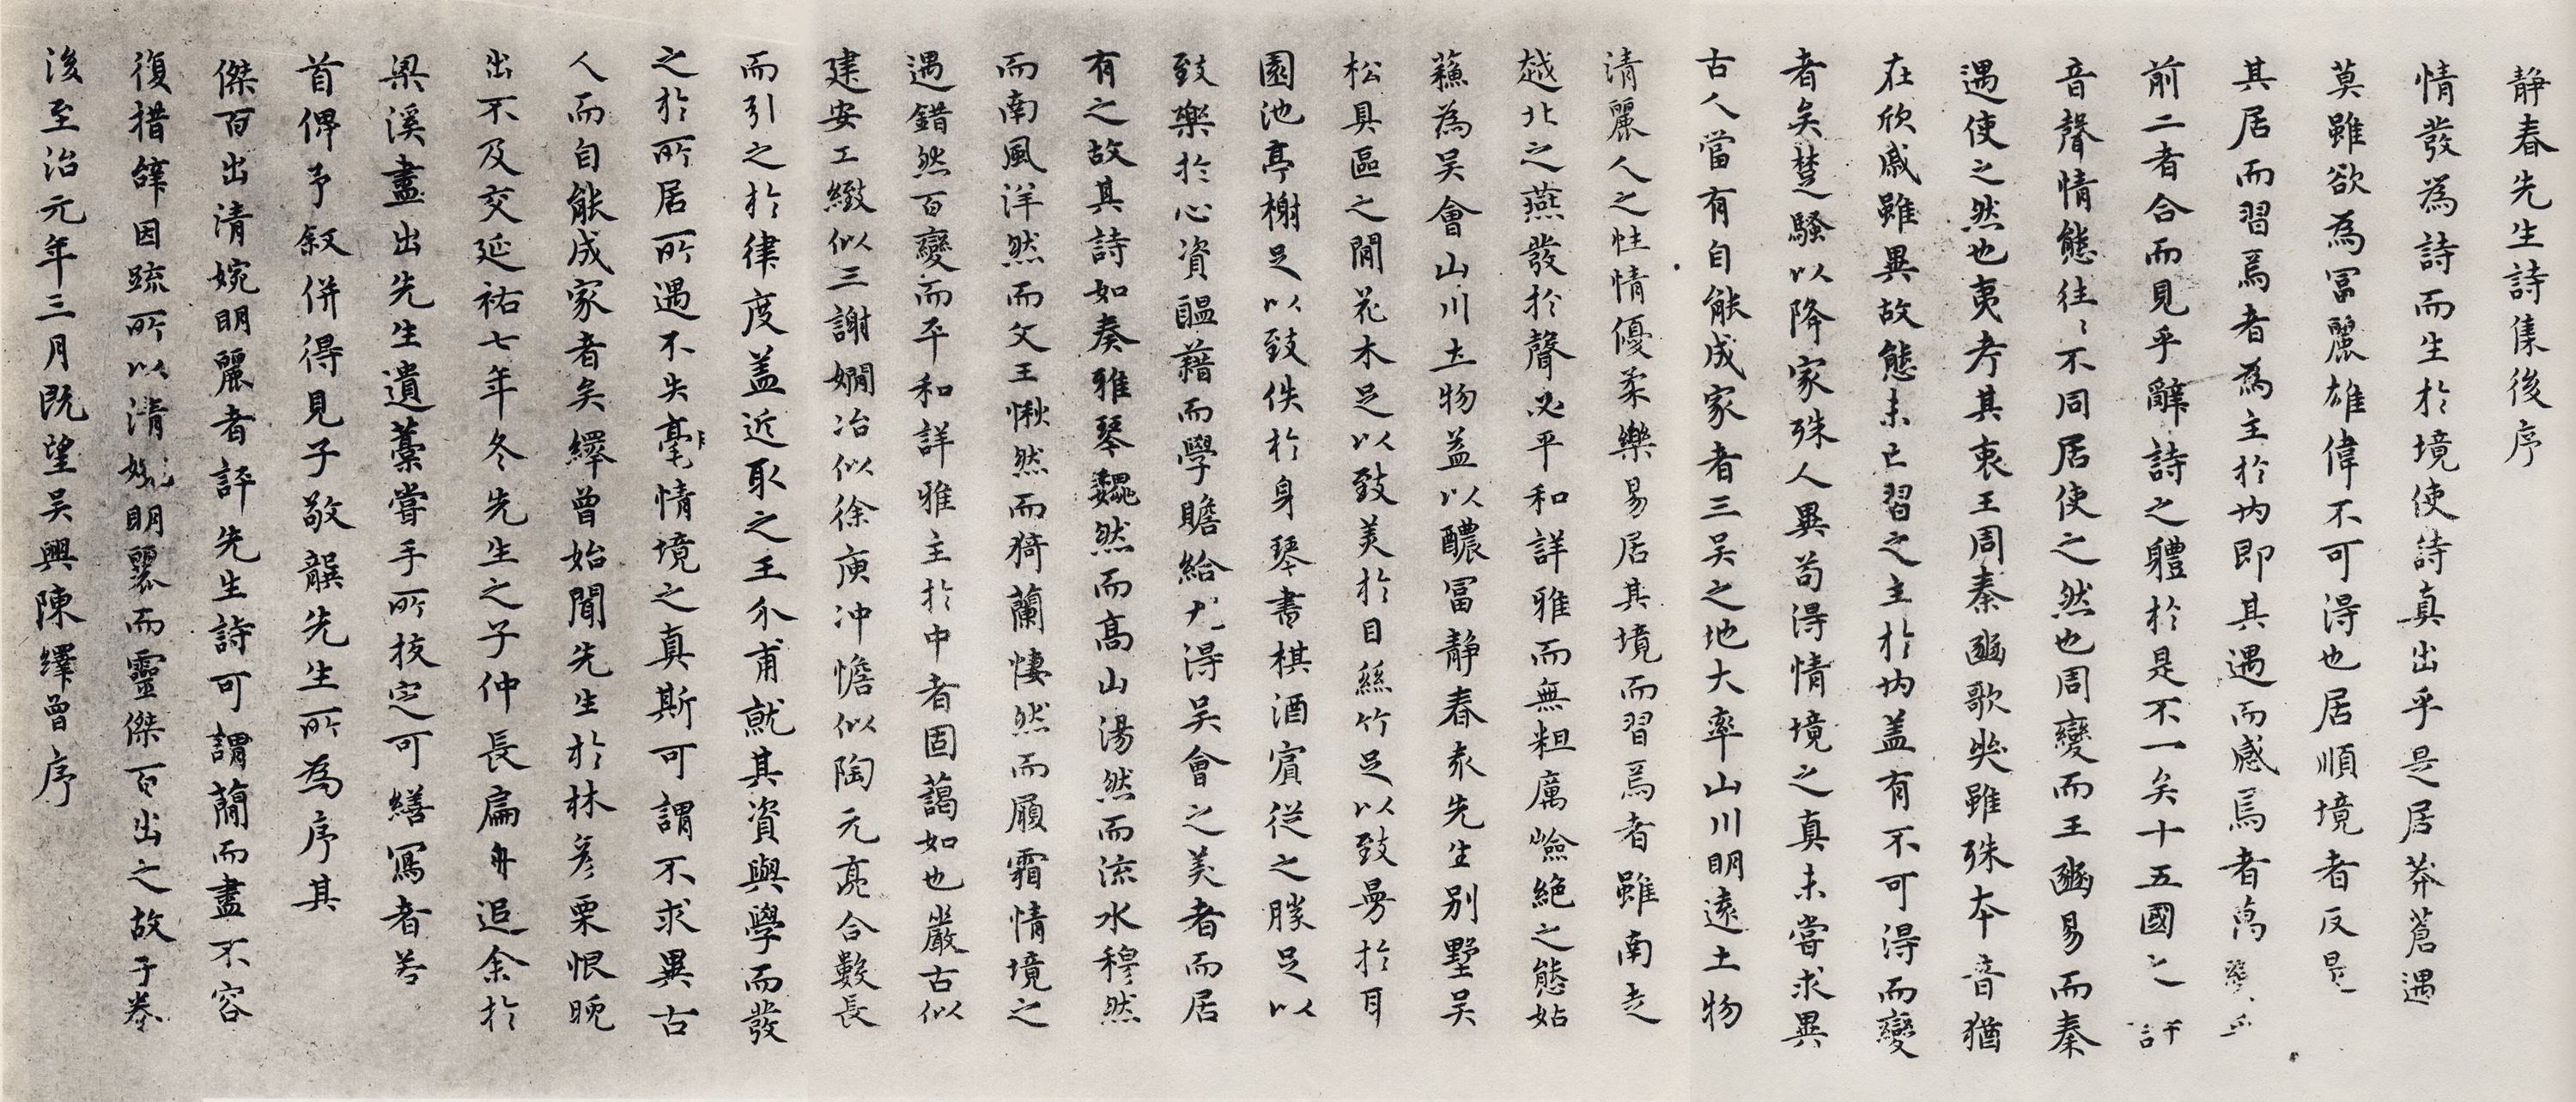 靜春先生詩集後序
情發為詩而生於境使詩真出乎是居莽蒼遇
莫雖欲為冨麗雄偉不可得也居順境者反是
其居而習焉者為主於内即其遇而感焉者萬
前二者合而見乎辭詩之體於是不一矣十五國之
音聲情態往〻不同居使之然也周變而王豳易而秦
遇使之然也夷考其衷王周秦豳歌哭雖殊本音猶
在欣戚雖異故態未已習之主於内盖有不可得而變
者矣楚騷以降家殊人異苟得情境之真未嘗求異
古人當有自能成家者三吴之地大率山川明遠土物
清麗人之性情優柔樂易居其境而習焉者雖南走
越北之燕發於聲必平和詳雅而無粗厲嶮絶之態姑
蘓為吴會山川土物益以醲冨靜春袁先生别墅吴
松具區之間花木足以致美於目絲竹足以致曼於耳
園池亭榭足以致佚於身琴書棋酒賓從之勝足以
致樂於心資醖藉而學贍給尤得吴會之美者而居
有之故其詩如奏雅琴巍然而髙山湯然而流水穆然
而南風洋然而文王愀然而猗蘭悽然而履霜情境之
遇錯然百變而平和詳雅主於中者固藹如也嚴古似
建安工緻似三謝嫺冶似徐庾冲憺似陶元亮合數長
而引之於律度盖近取之王介甫就其資與學而發
之於所居所遇不失毫情境之真斯可謂不求異古
人而自能成家者矣繹曾始聞先生於林彥栗恨晚
出不及交延祐七年冬先生之子仲長扁舟追余於
梁溪盡出先生遺藁嘗手所挍定可繕冩者若
首俾予叙併得見子敬龔先生所為序其
傑百出清婉明麗者評先生詩可謂蕳而盡不容
復措辝因䟽所以清婉明麗而靈傑百出之故于卷
後至治元年三月既望吴興陳繹曾序